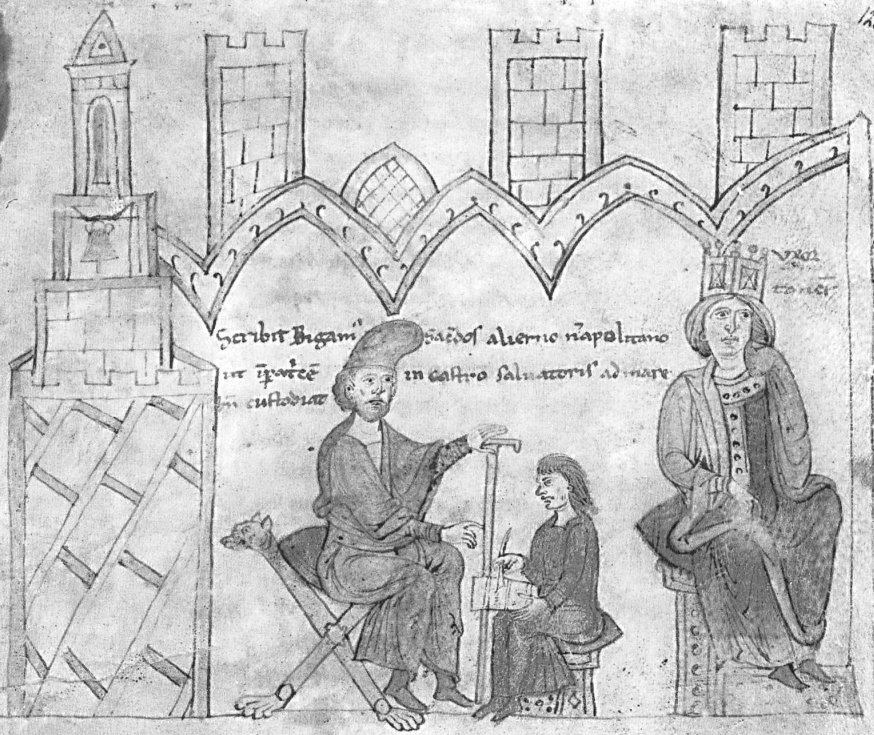 Scribit Bigam' Sac̄dos alierno n̄apolitano
ut ip̄at̄cē in castro saluatoris ad mare
custodiat
Vxor